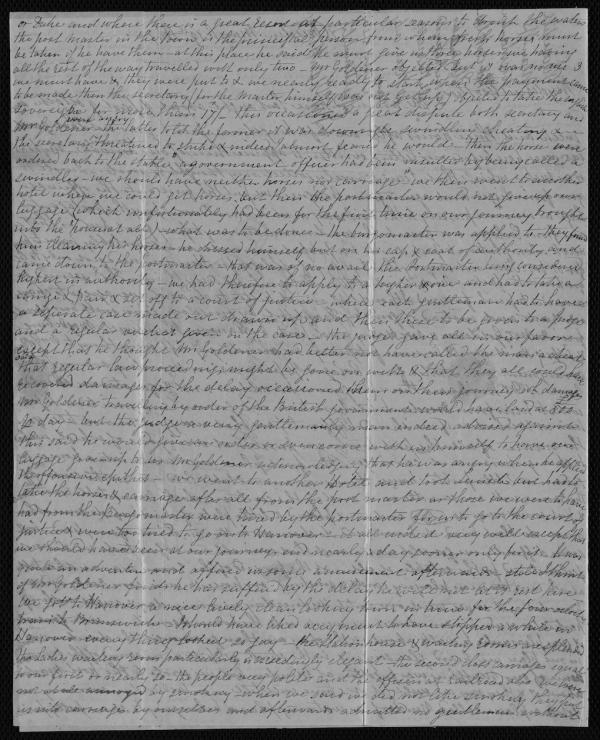 or Duke and where there is a great resort at particular seasons to drink the waters
the post master in the Town is the principal person from whom fresh horses must
be taken if he have them – at this place he said he must give us three horses we having
all the rest of the way travelled with only two – Mr Goldener objected but it was no use 3
we must have & they were put to & we nearly ready to start when the payment came
to be made then the secretary for the Master himself was not objected to take the
sovereigns for more than 17/- this occasioned a great dispute both secretary and
Mr Goldener were angry the latter told the former it was downright swindling cheating &
the secretary threatened to strike & indeed almost feared he would – then the horses were
ordered back to the stable "a government officer had been insulted by being called a
swindler – we should have neither horses nor carriage" we then went to another
hotel where we could get horses but then the postmaster would not give up our
luggage (which unfortunately had been for the first time on our journey brought
into the – what was to be done – the burgomaster was applied to they found
him cleaning his horses – he dressed himself put on his cap & coat of authority and
came down to the postmaster – that was of no avail the postmaster being considered
highest in authority – we had therefore to apply to a higher one and had to take a
& pair & set off to a court of justice – where each gentleman had to have
a separate case made out drawn up and then these to be given to a judge
and a regular verdict given in the case – the judge gave all in our favor
except that he thought Mr Goldener had better not have called the man a cheat
that regular law proceedings might be gone on with & that they all could have
recovered damages for the delay occasioned them on their journey the damage
Mr Goldener travelling by order of the British government would have laid at £50
a day – but the judge a very gentlemanly man indeed advised against
this said he would give an order or even come with us himself to have our
luggage given up to us Mr Goldener acknowledging that he was angry when he applied
the offensive epithet – we went to another Hotel and took dinner but had to
take the horses & carriage after all from the post master as those we were to have
had from the Burgomaster were tired by the postmaster for us to go to the court of
justice & were too tired to go on to Hanover – it all ended very well except that
we should have been at our journeys end nearly a day sooner only for it – it was
quite an adventure and afforded us some amusement afterwards – still I think
if Mr Goldener finds he has suffered by the delay he will not let it rest here
We got to Hanover a nice lively clean looking town in time for the four oclock
train to Brunswick – I would have liked very much to have stopped a while in
Hanover every thing looked so gay – the station house & waiting rooms are splendid
the Ladies waiting room particularly is exceedingly elegant – the second class carriages equal
to our first or nearly so – the people very polite and the officers at railroad also
not while annoyed by smoking – when we said we did not like smoking they put
us into carriage by ourselves and afterwards admitted no gentlemen without